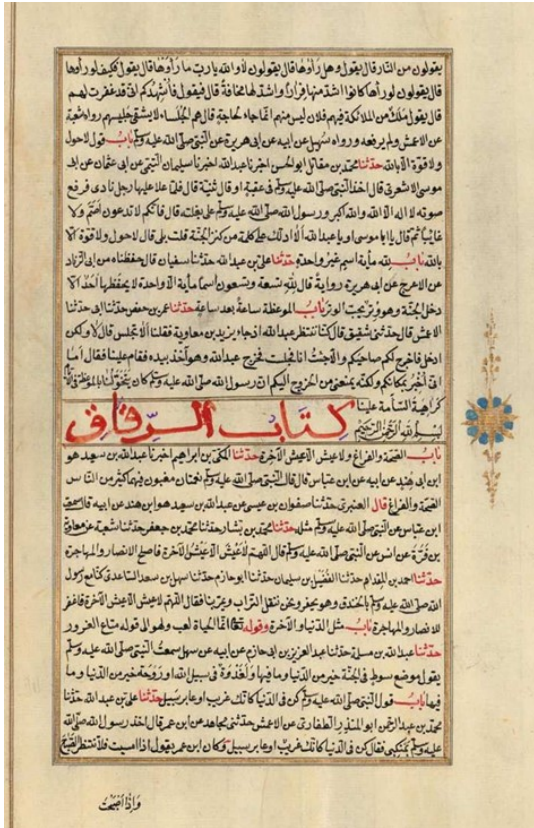 يقولون من النار قال يقول وهل رأوها قال يقولون لا والله يا رب ما رأوها قال يقول فكيف لو رأوها
قال يقولون لو رأوها كانوا اشد منها فرارا واشد لها مخافة قال فيقول فأشهدكم انى قد غفرت لهم
قال يقول ملك من الملائكة فيهم فلان ليس منهم انما جاء لحاجة قال هم الجلساء لا يشقى جليسهم رواه شعبة
عن الاعمش ولم يرفعه ورواه سهيل عن ابيه عن ابى هريرة عن النبى صلى الله عليه وسلم باب قول لا حول
ولا قوة الا بالله حدثنا محمد بن مقاتل ابو الحسن اخبرنا عبد الله اخبرنا سليمان التيمى عن ابى عثمان عن ابى
موسى الاشعرى قال اخذ النبى صلى الله عليه وسلم فى عقبة او قال ثنية قال فلما علا عليها رجل نادى فرفع
صوته لا اله الا الله والله اكبر ورسول الله صلى الله عليه وسلم على بغلته قال فانكم لا تدعون اصم ولا
غايبا ثم قال يا ابا موسى او يا عبد الله الا ادلك على كلمة من كنز الجنة قلت بلى قال لا حول ولا قوة الا
بالله باب لله مأية اسم غير واحدة حدثنا على بن عبد الله حدثنا سفيان قال حفظناه من ابى الزناد
عن الاعرج عن ابى هريرة رواية قال لله تسعة وتسعون اسما مأية الا واحدة لا يحفظها احد الا
دخل الجنة وهو وتر يحب الوتر باب الموعظة ساعة بعد ساعة حدثنا عمر بن حفص حدثنا ابى حدثنا
الاعمش قال حدثنى شقيق قال كنا ننتظر عبد الله اذ جاء يزيد بن معاوية فقلنا الا تجلس قال لا ولكن
ادخل فاخرج لكم صاحبكم والا جئت انا فجلست فخرج عبد الله وهو آخذ بيده فقام علينا فقال اما
انى اخبر بمكانكم ولكنه يمنعنى من الخروج اليكم ان رسول الله صلى الله عليه وسلم كان يتخولنا بالموعظة فى الايام
كراهية السآمة علينا
كتاب الرقاق
بسم الله الرحمن الرحيم
باب الصحة والفراغ ولا عيش الا عيش الآخرة حدثنا المكى بن ابراهيم اخبرنا عبد الله بن سعيد هو
ابن ابى هند عن ابيه عن ابن عباس قال قال النبى صلى الله عليه وسلم نعمتان مغبون فيهما كثير من الناس
الصحة والفراغ قال العنبرى حدثنا صفوان بن عيسى عن عبد الله بن سعيد هو ابن هند عن ابيه قال سمعت
ابن عباس عن النبى صلى الله عليه وسلم مثله حدثنا محمد بن بشار حدثنا محمد بن جعفر حدثنا شعبة عن معاوية
بن قرة عن انس عن النبى صلى الله عليه وسلم قال اللهم لا عيش الا عيش الآخرة فاصلح الانصار والمهاجرة
حدثنا احمد بن المقدام حدثنا الفضيل بن سليمان حدثنا ابو حازم حدثنا سهل بن سعد الساعدى كنا مع رسول
الله صلى الله عليه وسلم بالخندق وهو يحفر ونحن ننقل التراب ويمر بنا فقال اللهم لا عيش الا عيش الآخرة فاغفر
للانصار والمهاجرة باب مثل الدنيا والآخرة وقوله انما الحياة لعب ولهو الى قوله متاع الغرور
حدثنا عبد الله بن مسلمة حدثنا عبد العزيز بن ابى حازم عن ابيه عن سهل سمعت النبى صلى الله عليه وسلم
يقول موضع سوط فى الجنة خير من الدنيا وما فيها ولغدوة فى سبيل الله او روحة خير من الدنيا وما
فيها باب قول النبى صلى الله عليه وسلم كن فى الدنيا كانك غريب او عابر سبيل حدثنا على بن عبد الله حدثنا
محمد بن عبد الرحمن ابو المنذر الطفاوى عن الاعمش حدثنى مجاهد عن ابن عمر قال اخذ رسول الله صلى الله
عليه وسلم بمنكبى فقال كن فى الدنيا كانك غريب او عابر سبيل وكان ابن عمر يقول اذا امسيت فلا تنتظر الصباح
واذا اصبحت